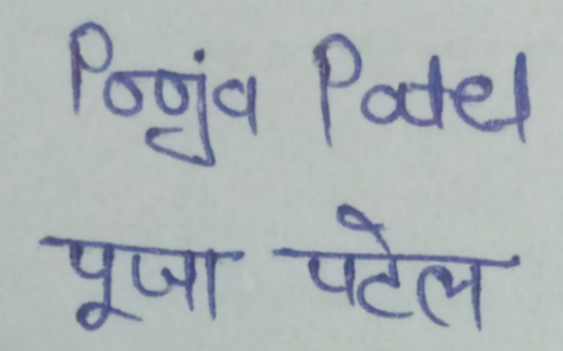 Pooja Patel
पूजा पटेल